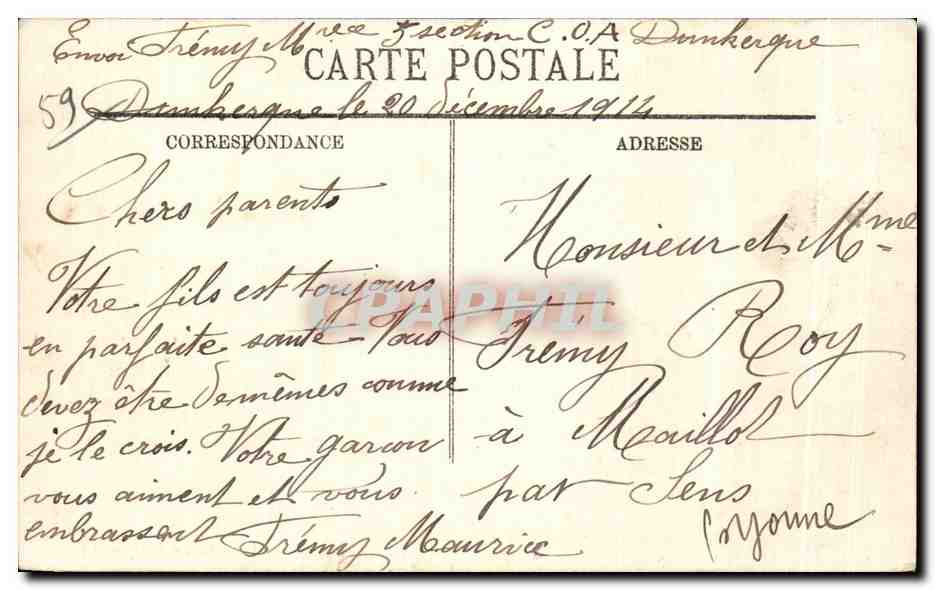 Envoi Trémy Mrce 5 section C.O.A Dunkerque
CARTE POSTALE
59 Dunkerque le 20 décembre 1914
CORRESPONDANCE
Chers parents
Votre fils est toujours
en parfaite santé Vous
devez être de mêmes comme
je le crois. Votre garcon
vous aiment et vous
embrassent Trémy Maurice
ADRESSE
Monsieur et Mme
Trémy Roy
à Maillot
par Sens
Yonne
CPAPHIL